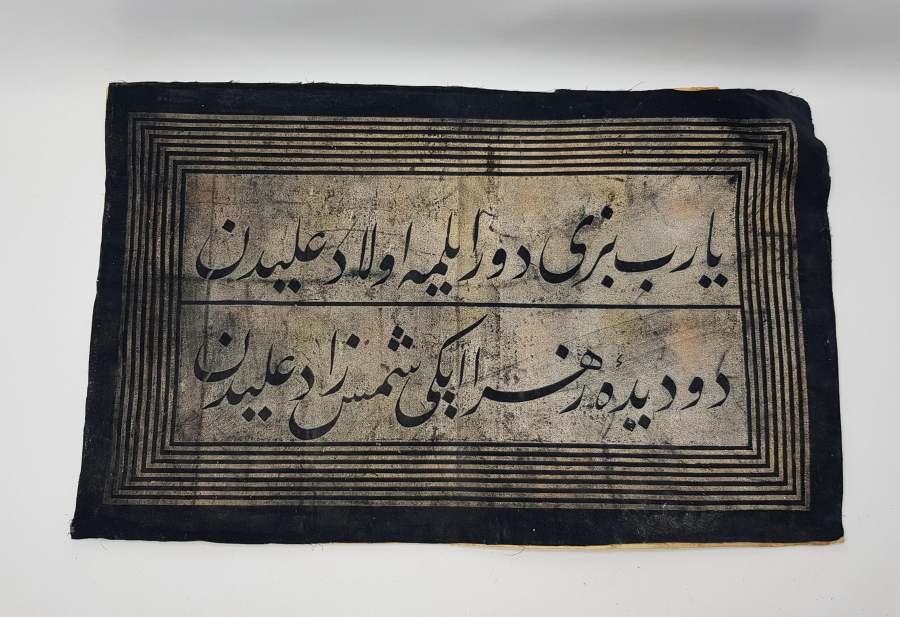 یارب بزی دور ایلمه اولاد علیدن
دو دیدهٔ زهرا ایکی شمس زاد علیدن